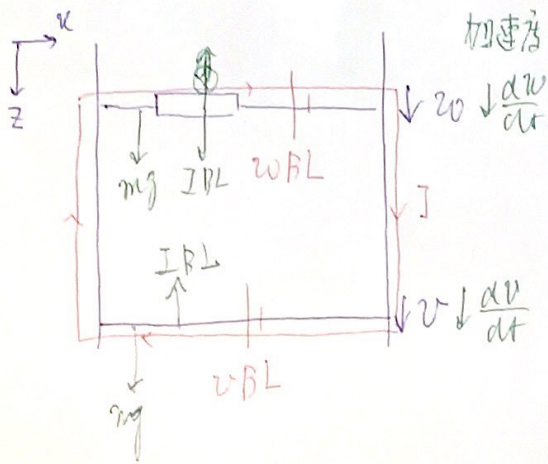 x
加速度
z
w dw/dt
mg IBL wBL
I
IBL
v dv/dt
vBL
mg